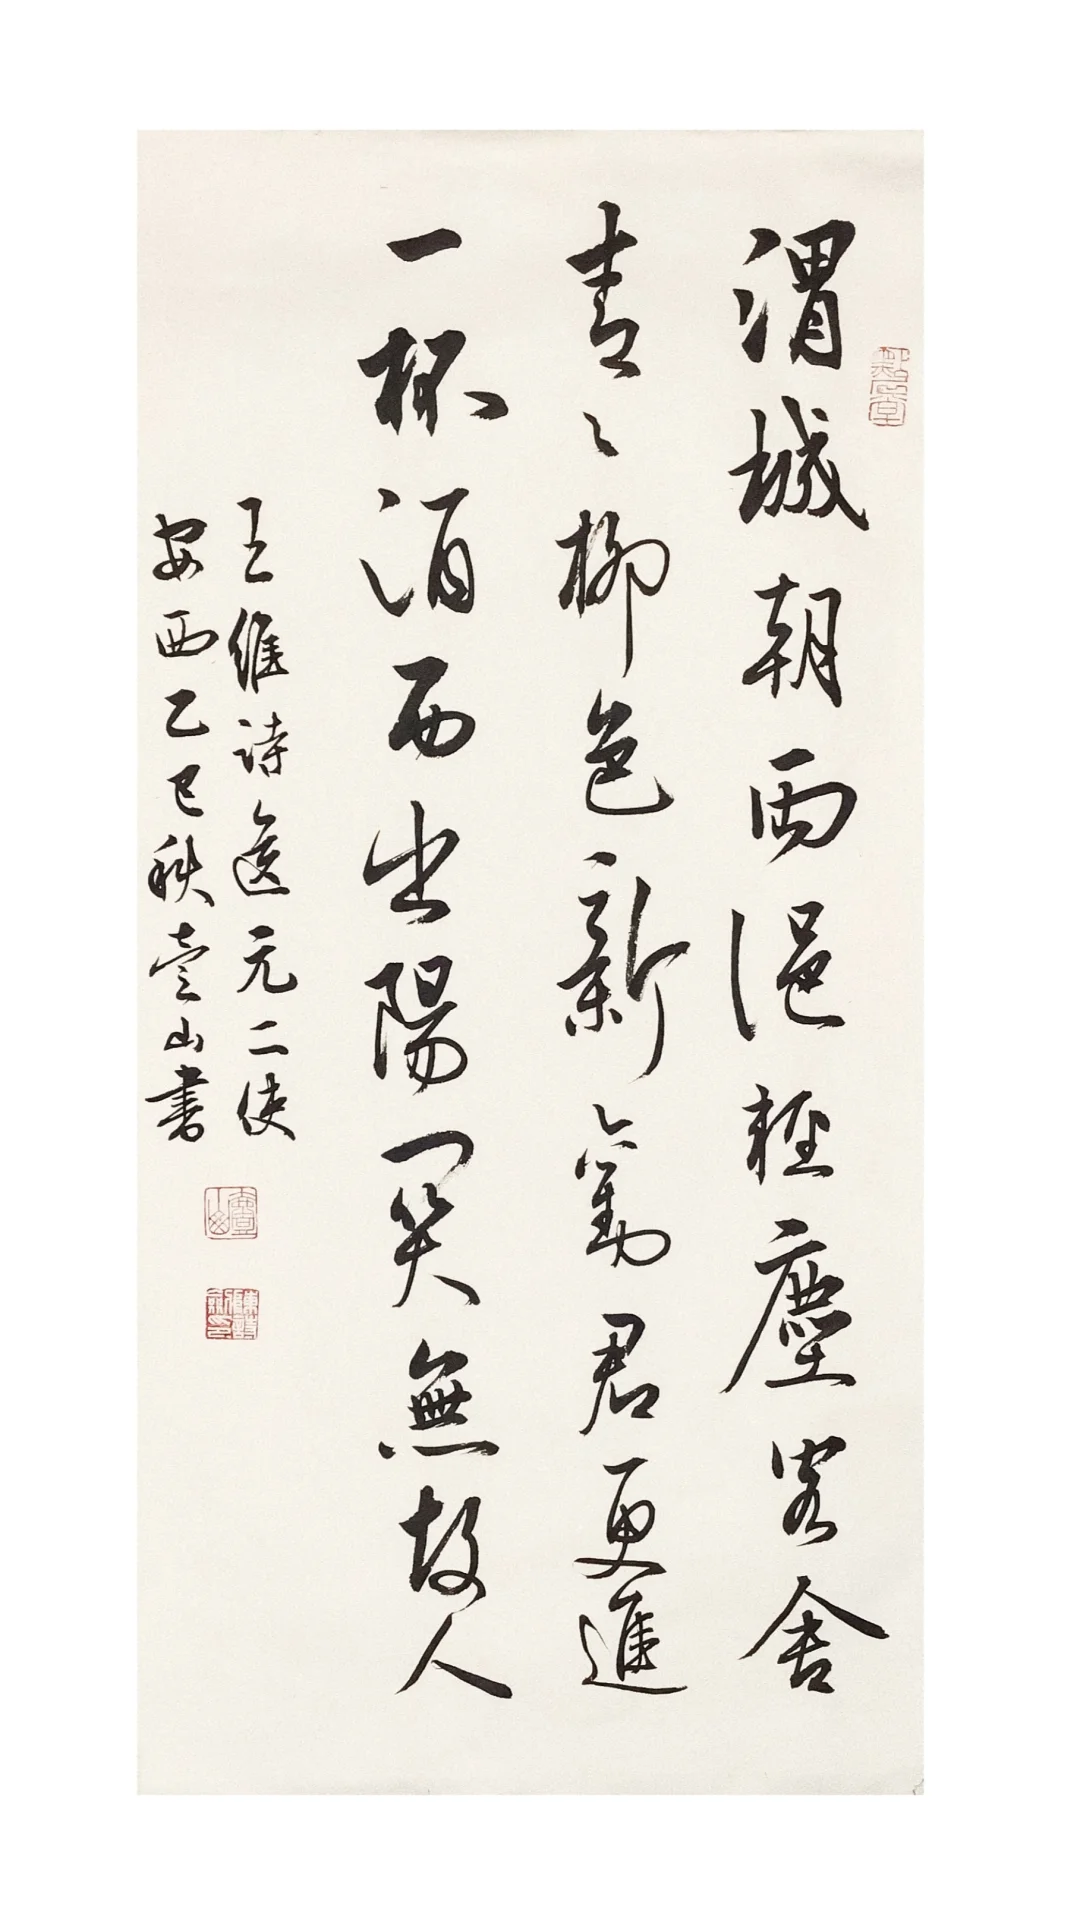 渭城朝雨浥輕塵客舍
青〻柳色新勸君更進
一杯酒西出陽關無故人
王維詩送元二使
安西乙巳秋壹山書
壹山